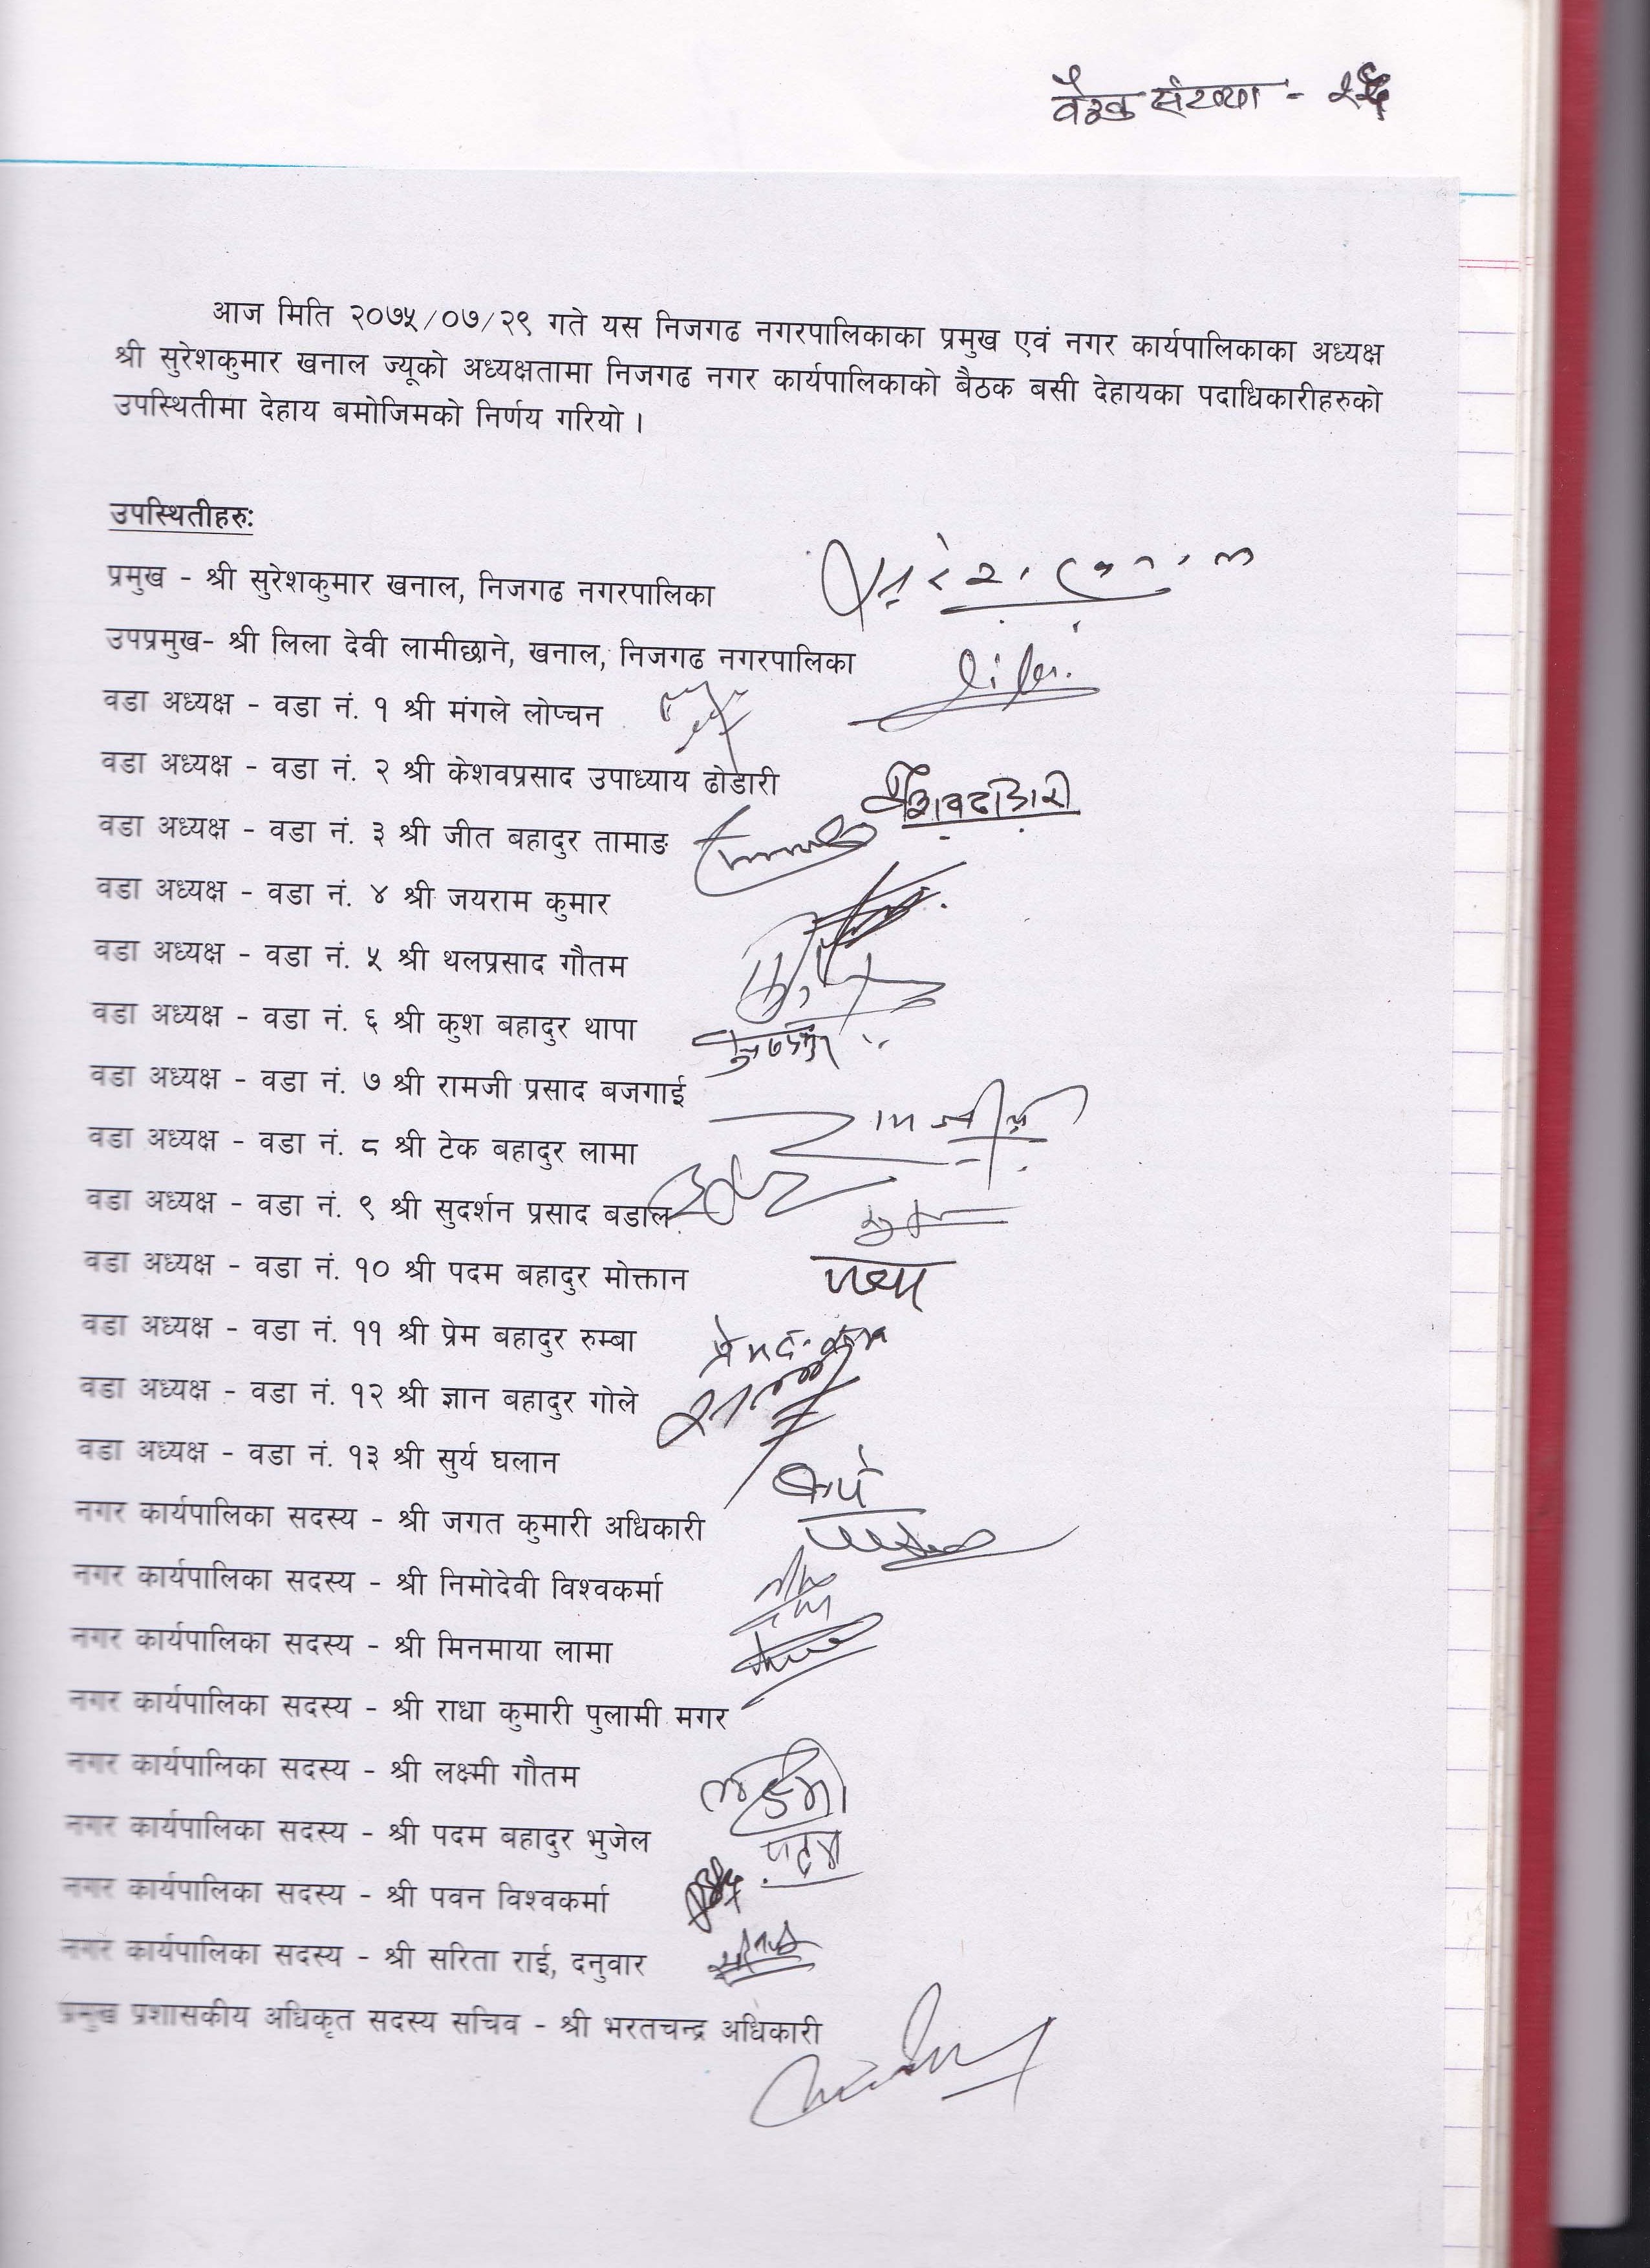 बैठक संख्या -
आज मिति २०७५/०७/२९ गते यस निजगढ नगरपालिकाका प्रमुख एवं नगर कार्यपालिकाका अध्यक्ष
श्री सुरेशकुमार खनाल ज्यूको अध्यक्षतामा निजगढ नगर कार्यपालिकाको बैठक बसी देहायका पदाधिकारीहरुको
उपस्थितीमा देहाय बमोजिमको निर्णय गरियो ।
उपस्थितीहरु:
प्रमुख - श्री सुरेशकुमार खनाल, निजगढ नगरपालिका
उपप्रमुख- श्री लिला देवी लामीछाने, खनाल, निजगढ नगरपालिका
वडा अध्यक्ष - वडा नं. १ श्री मंगले लोप्चन
वडा अध्यक्ष - वडा नं. २ श्री केशवप्रसाद उपाध्याय ढोडारी
वडा अध्यक्ष - वडा नं. ३ श्री जीत बहादुर तामाङ
वडा अध्यक्ष - वडा नं. ४ श्री जयराम कुमार
वडा अध्यक्ष - वडा नं. ५ श्री थलप्रसाद गौतम
वडा अध्यक्ष - वडा नं. ६ श्री कुश बहादुर थापा
वडा अध्यक्ष - वडा नं. ७ श्री रामजी प्रसाद बजगाई
वडा अध्यक्ष - वडा नं. ८ श्री टेक बहादुर लामा
वडा अध्यक्ष - वडा नं. ९ श्री सुदर्शन प्रसाद बडाल
वडा अध्यक्ष - वडा नं. १० श्री पदम बहादुर मोक्तान
वडा अध्यक्ष - वडा नं. ११ श्री प्रेम बहादुर रुम्बा
वडा अध्यक्ष - वडा नं. १२ श्री ज्ञान बहादुर गोले
वडा अध्यक्ष - वडा नं. १३ श्री सुर्य घलान
नगर कार्यपालिका सदस्य - श्री जगत कुमारी अधिकारी
नगर कार्यपालिका सदस्य - श्री निमोदेवी विश्वकर्मा
नगर कार्यपालिका सदस्य - श्री मिनमाया लामा
नगर कार्यपालिका सदस्य - श्री राधा कुमारी पुलामी मगर
नगर कार्यपालिका सदस्य - श्री लक्ष्मी गौतम
नगर कार्यपालिका सदस्य - श्री पदम बहादुर भुजेल
नगर कार्यपालिका सदस्य - श्री पवन विश्वकर्मा
नगर कार्यपालिका सदस्य - श्री सरिता राई, दनुवार
प्रमुख प्रशासकीय अधिकृत सदस्य सचिव - श्री भरतचन्द्र अधिकारी